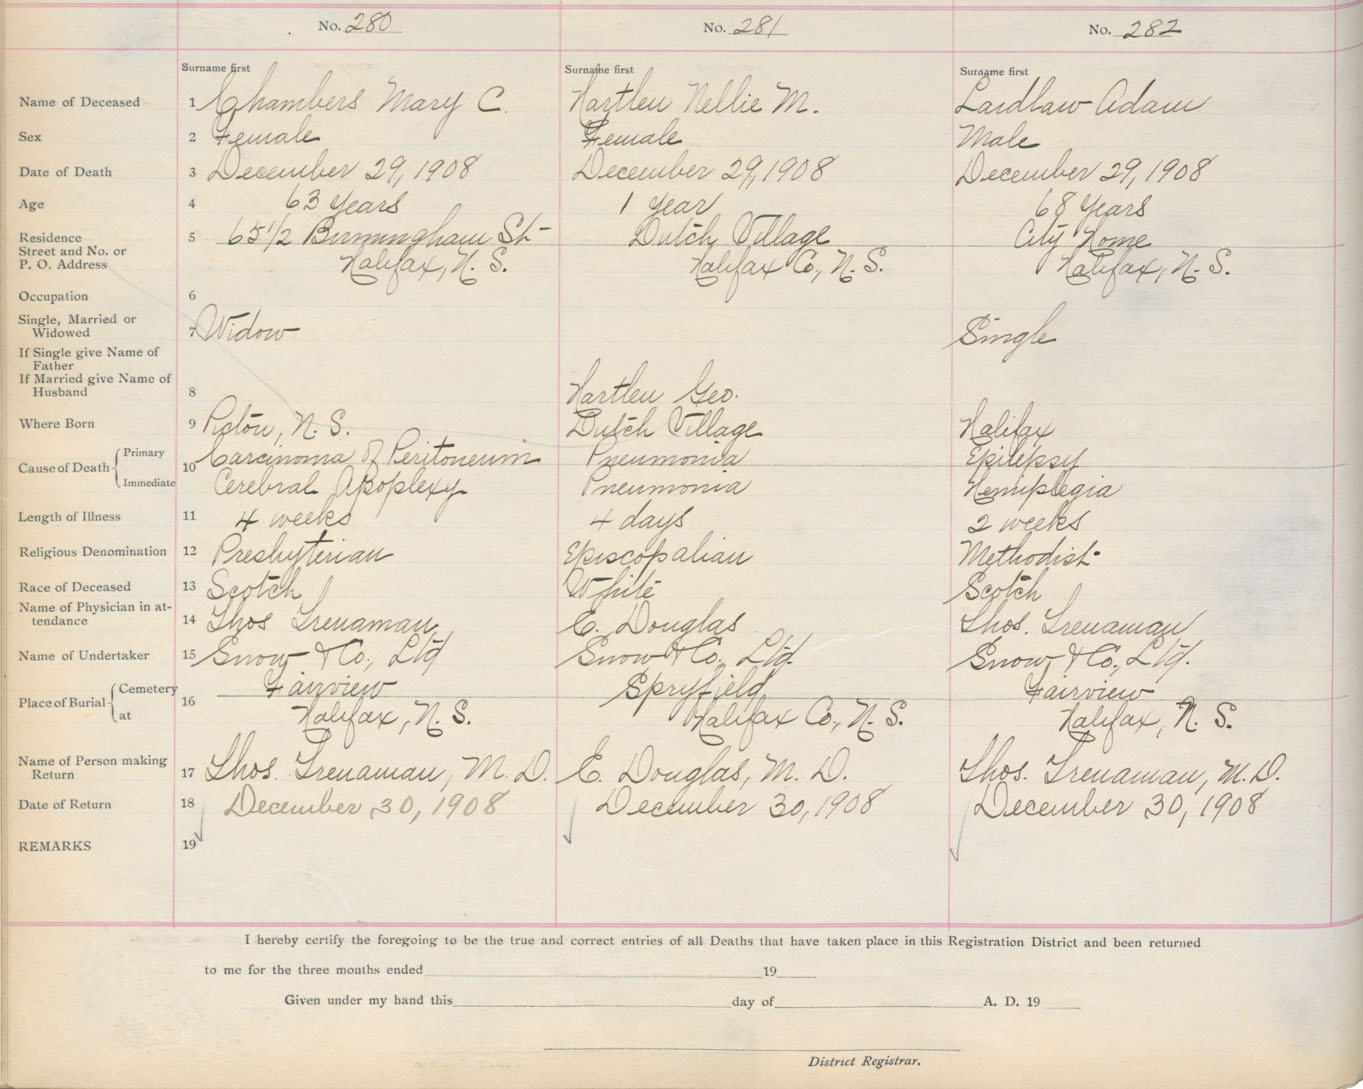 No. 280 No. 281 No. 282
Surname first Surname first Surname first
Name of Deceased 1 Chambers Mary C. Hartleu Nellie M. Laidlaw Adam
Sex 2 Female Female Male
Date of Death 3 December 29, 1908 December 29, 1908 December 29, 1908
Age 4 63 Years 1 Year 68 Years
Residence 5 65 1/2 Birmingham St- Dutch Village City Home
Street and No. or
P. O. Address Halifax, N. S. Halifax Co., N. S. Halifax, N. S.
Occupation 6
Single, Married or
Widowed 7 Widow Single
If Single give Name of
Father
If Married give Name of
Husband 8 Hartleu Geo.
Where Born 9 Pictou, N. S. Dutch Village Halifax
Cause of Death Primary 10 Carcinoma of Peritoneum Pneumonia Epilepsy
Immediate Cerebral Apoplexy Pneumonia Hemiplegia
Length of Illness 11 4 weeks 4 days 2 weeks
Religious Denomination 12 Presbyterian Episcopalian Methodist-
Race of Deceased 13 Scotch White Scotch
Name of Physician in at-
tendance 14 Thos Trenaman E. Douglas Thos. Trenaman
Name of Undertaker 15 Snow & Co., Ltd Snow & Co., Ltd. Snow & Co., Ltd.
Place of Burial Cemetery 16 Fairview Spryfield Fairview
at Halifax, N. S. Halifax Co., N. S. Halifax, N. S.
Name of Person making
Return 17 Thos. Trenaman, M. D. E. Douglas, M. D. Thos. Trenaman, M. D.
Date of Return 18 December 30, 1908 December 30, 1908 December 30, 1908
REMARKS 19
I hereby certify the foregoing to be the true and correct entries of all Deaths that have taken place in this Registration District and been returned
to me for the three months ended 19
Given under my hand this day of A. D. 19
District Registrar.